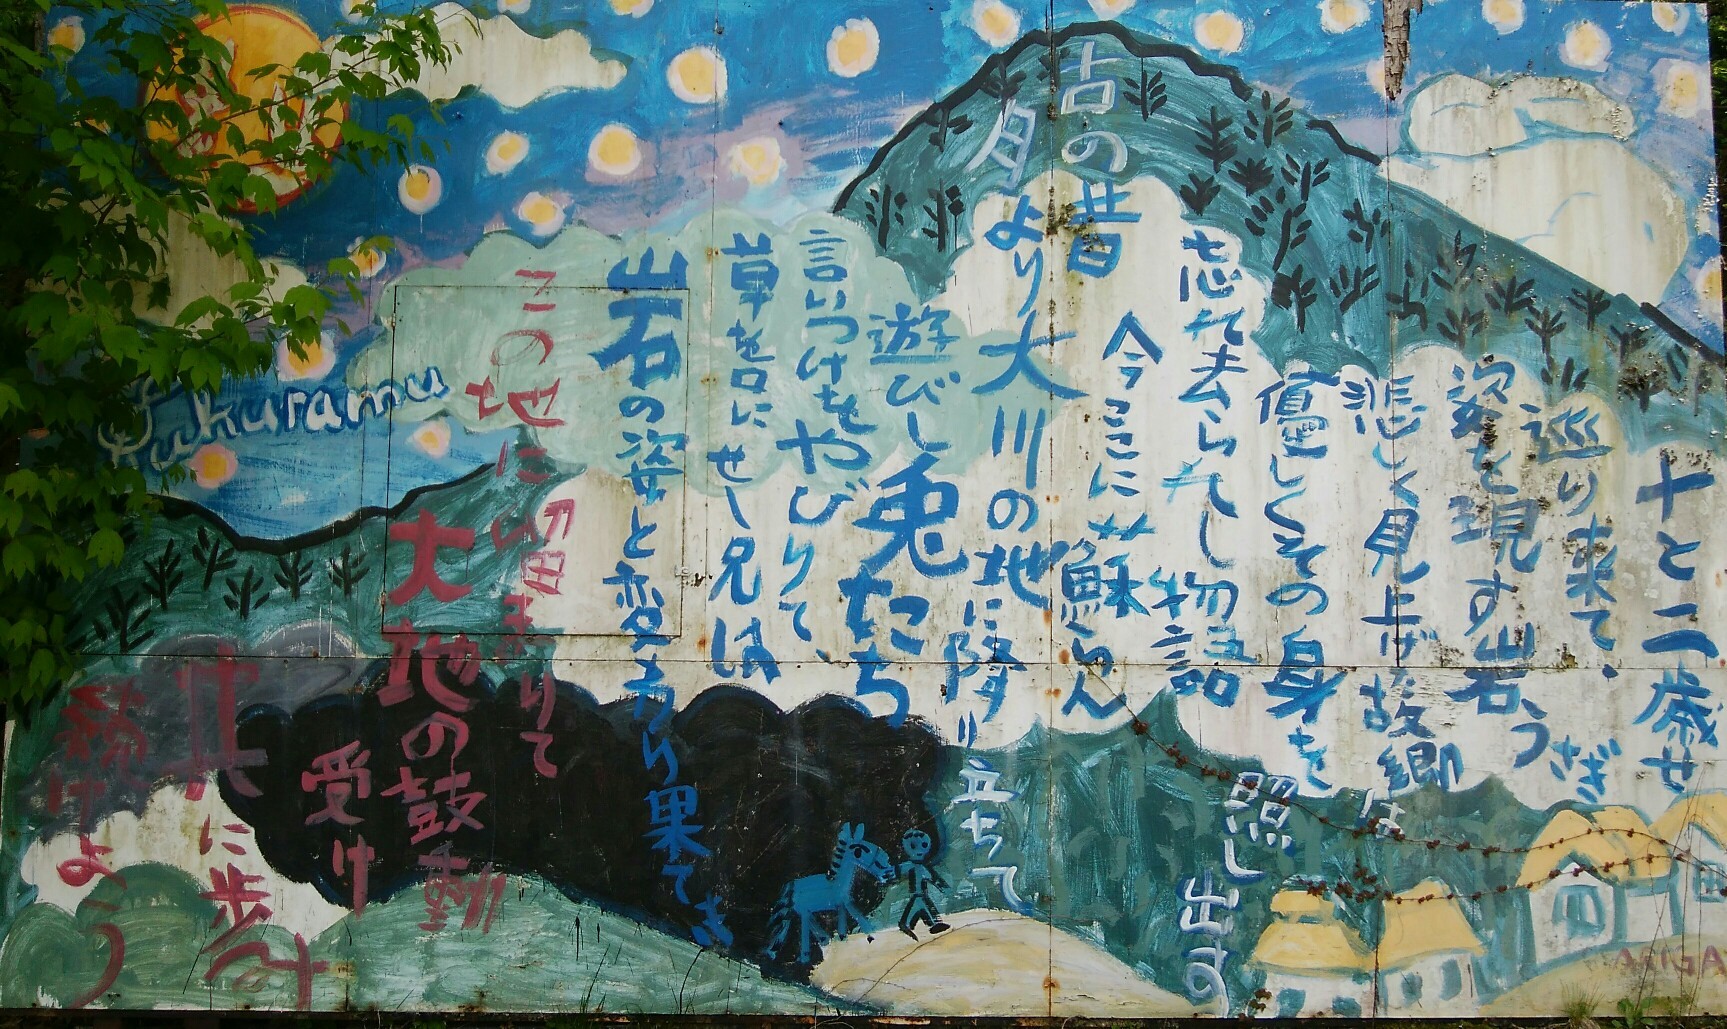 十と二歳せ
巡り来て、うさぎ
姿を現す岩
悲しく見上げ故郷は
優しくその身を
照し出す
忘れ去られし物語
今ここに蘇らん
古の昔
月より大川の地に降り立ちて
遊びし兎たち
言いつけをやぶりて、
草を口にせし兄は
岩の姿と変わり果てき
この地に留まりて
大地の鼓動
受け
共に歩み
続けよう
Fukuramu
ARIGA